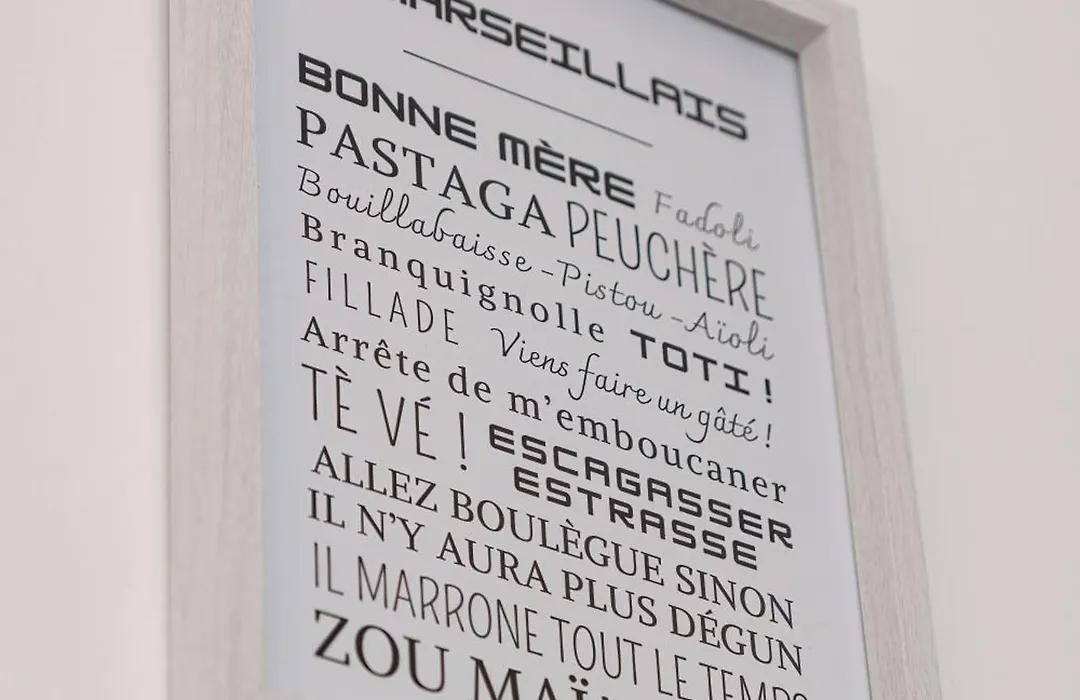 MARSEILLAIS
BONNE MÈRE Fadoli
PASTAGA PEUCHÈRE
Bouillabaisse - Pistou - Aïoli
Branquignolle TOTI !
FILLADE Viens faire un gâté !
Arrête de m’emboucaner
TÈ VÉ ! ESCAGASSER
ESTRASSE
ALLEZ BOULÈGUE SINON
IL N’Y AURA PLUS DÉGUN
IL MARRONE TOUT LE TEMPS
ZOU